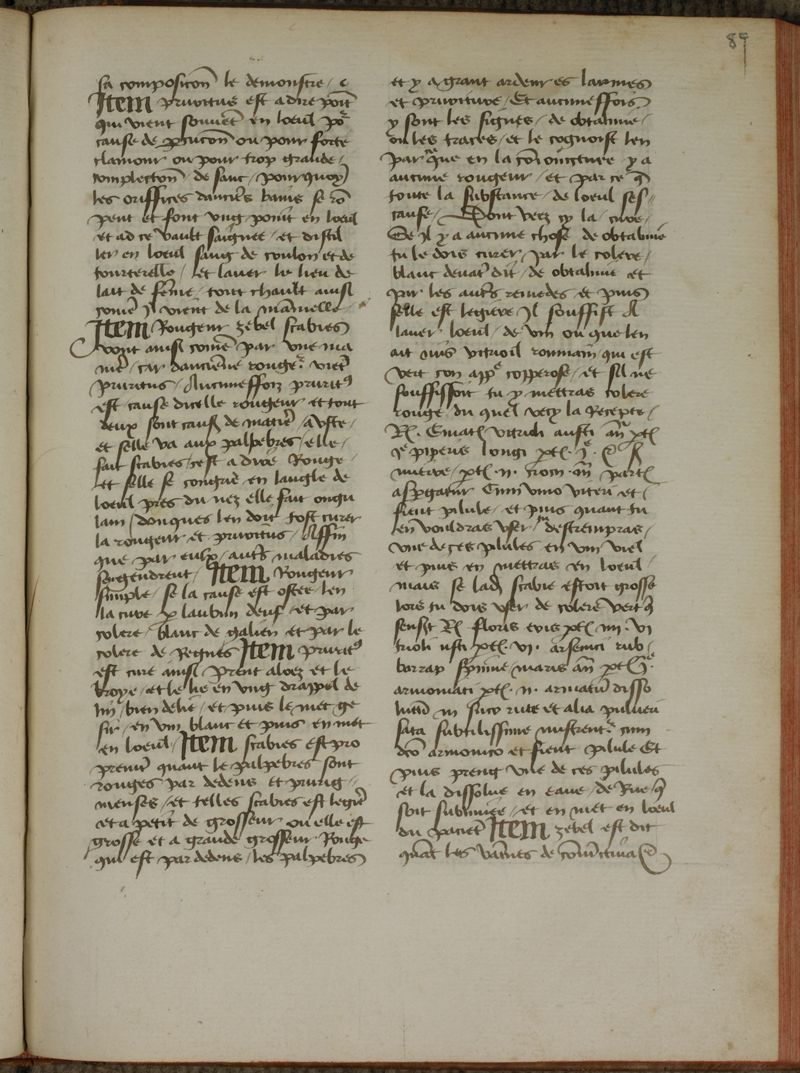 89
sa composicon le demonstre / c
Item pruritus est adire point
qui vient souvent en loeil po
cause de pricon ou pour forte
clamour ou pour trop grande /
complection de sanc / pour quoy
les oriffices danciens vains se
peut et font ung point en loeil
et ad ce vault saignee / et distil
ler en loeil sang de coulon et de
tourterelle / et laver le lieu de
lait de feme / tout chault ainsi
come il vient de la mamelle
Item Rougeur zebel scabies
vont ainsi come par une ma
nie / car dancienne rouge vient
pruritus / Aucuneffoiz prurit
est cause dicelle rougeur et tout
deux sont causes de matie aduste /
et selle va aux palpebres / elle /
fait scabies / cest a dire Rouge /
et selle se congrie en langle de
loeil pres du nez elle fait ongu
lam / donques len doit tost curer
la rougeur et pruritus / Affin
que par eulx / auts maladies
sengendrent / Item Rougeur
simple / se la cause est ostee / len
la cure par laubun deuf / et par
colere / blanc de galien et par le
colere de Regnes Item prurit
est cure ainsi / Prent aloez et le
broye / et le lie en ung drappel de
lin / bien delie / et puis le met ge
sir / en vin blanc et puis en met
en loeil / Item scabies est pro
prement quant le palpebres sont
rouges par dedens et prurig /
neuses / et telles scabies est legie
et a petit de grosseur ou elle est
grosse et a grande grosseur Rouge
qui est par dedens / les palpebres
et y a grant ardeur es larmes
et pruriture / Et aucuneffois
y sont les signes / de obtalmie /
ou les traces / et le cognoist len
par que en la conioincture y a
aucune rougeur / et par ce q
toute la substance / de loeil ses /
cause / Dont veez cy la cure /
Se il y a aucune chose de obtalmie
tu le dois curer / par le colere /
blanc devat dit / de obtalmie et
par les auts remedes et puis
selle est legiere il souffist de
laver loeil / de vin ou que len
ait mis vitreoil roumain qui est
vert con appe copperose / et sil ne
souffissoit tu y mettras colere
rouge du quel vecy la Recepte /
Rx. Ematis vitrioli austi an pt
piperis longi pt.
mirre / pt. ii. croci an part
aspgatur cum vino viteri et
fient pilule / et puis quant tu
en vouldras user / destrempras /
une de ces pilules en vin viel
et puis en mettras en loeil /
mais se lad scabie estoit grosse
lors tu dois user de colere vert q
sensuit Rx floris eris pt. iiii. vi
trioli usti pt. vi. arsenici rub /
borrax spume maris an pt
armoniaci pt. ii. armatiu disso
lutu in suco rute et alia pulveri
sata subtilissime misceant cum
dco armonico et fient pilule Et
puis preng une de ces pilules
et la dissolue en eaue / de Rue q
soit sublimee / et en met en loeil
du pacient Item zebel est dit
quat les vaines de conjunctiva